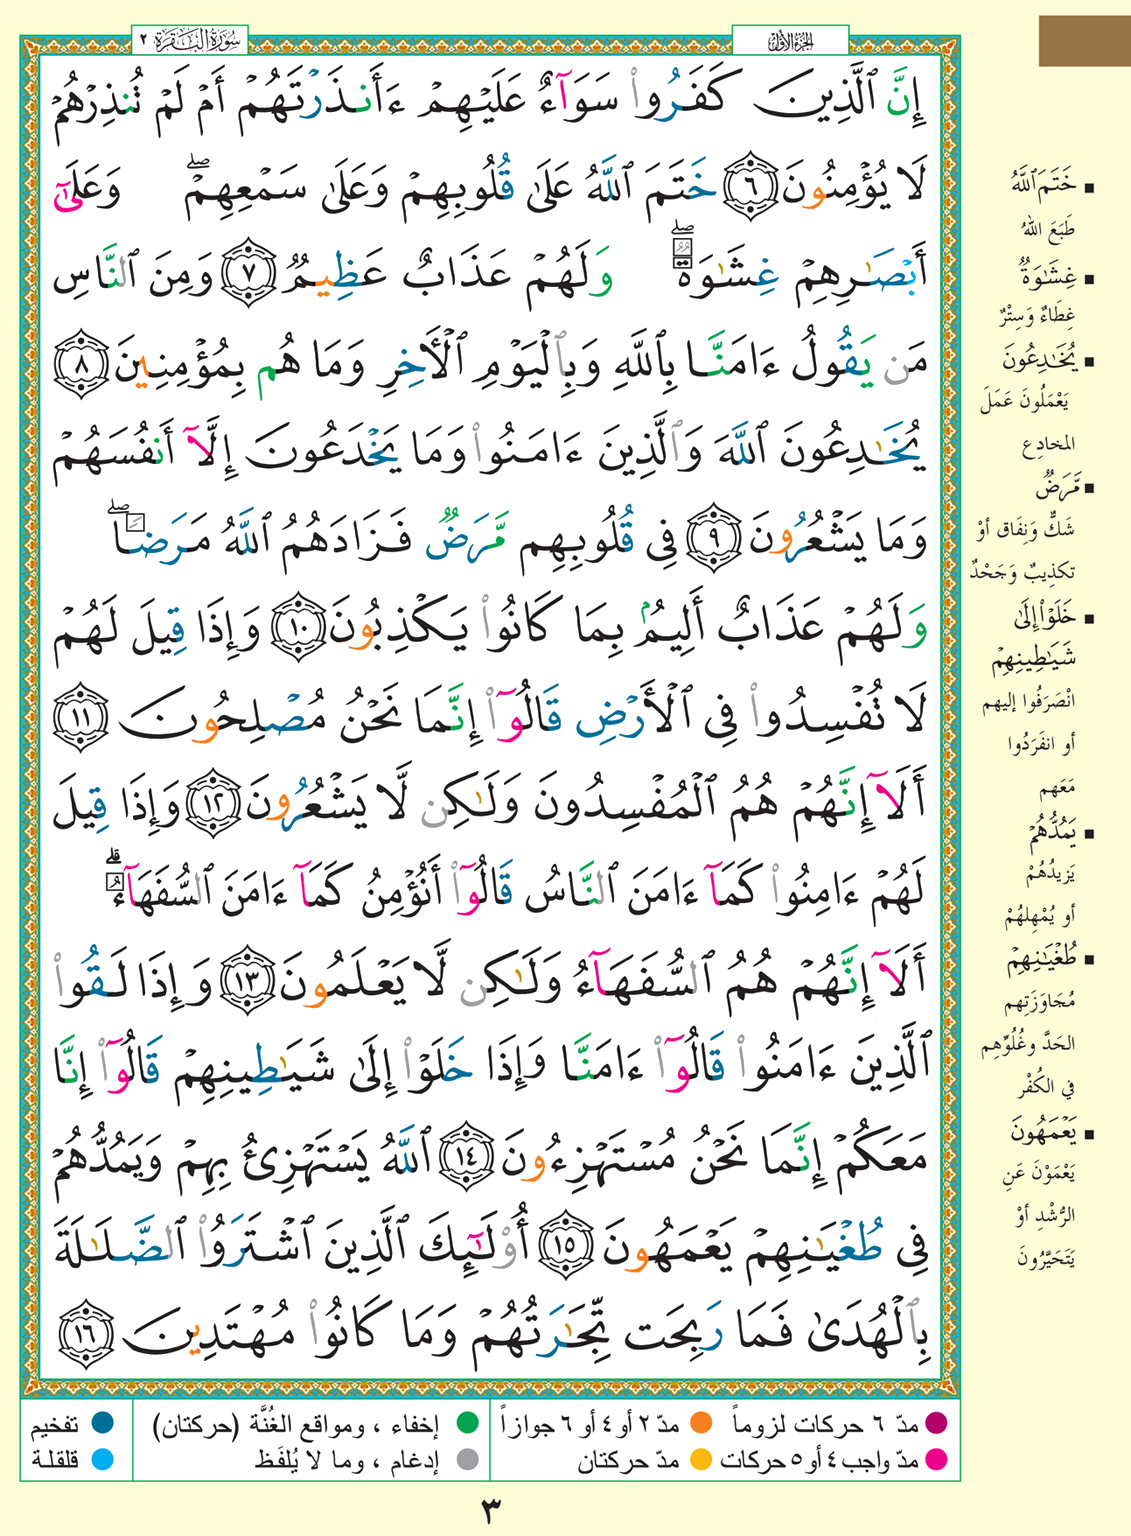 سُورَةُ البَقَرَة ٢
الجُزْءُ الأَوَّلُ
إِنَّ ٱلَّذِينَ كَفَرُوا۟ سَوَآءٌ عَلَيْهِمْ ءَأَنذَرْتَهُمْ أَمْ لَمْ تُنذِرْهُمْ
لَا يُؤْمِنُونَ ٦ خَتَمَ ٱللَّهُ عَلَىٰ قُلُوبِهِمْ وَعَلَىٰ سَمْعِهِمْ ۖ وَعَلَىٰٓ
أَبْصَـٰرِهِمْ غِشَـٰوَةٌ ۖ وَلَهُمْ عَذَابٌ عَظِيمٌ ٧ وَمِنَ ٱلنَّاسِ
مَن يَقُولُ ءَامَنَّا بِٱللَّهِ وَبِٱلْيَوْمِ ٱلْـَٔاخِرِ وَمَا هُم بِمُؤْمِنِينَ ٨
يُخَـٰدِعُونَ ٱللَّهَ وَٱلَّذِينَ ءَامَنُوا۟ وَمَا يَخْدَعُونَ إِلَّآ أَنفُسَهُمْ
وَمَا يَشْعُرُونَ ٩ فِى قُلُوبِهِم مَّرَضٌ فَزَادَهُمُ ٱللَّهُ مَرَضًا ۖ
وَلَهُمْ عَذَابٌ أَلِيمٌۢ بِمَا كَانُوا۟ يَكْذِبُونَ ١٠ وَإِذَا قِيلَ لَهُمْ
لَا تُفْسِدُوا۟ فِى ٱلْأَرْضِ قَالُوٓا۟ إِنَّمَا نَحْنُ مُصْلِحُونَ ١١
أَلَآ إِنَّهُمْ هُمُ ٱلْمُفْسِدُونَ وَلَـٰكِن لَّا يَشْعُرُونَ ١٢ وَإِذَا قِيلَ
لَهُمْ ءَامِنُوا۟ كَمَآ ءَامَنَ ٱلنَّاسُ قَالُوٓا۟ أَنُؤْمِنُ كَمَآ ءَامَنَ ٱلسُّفَهَآءُ ۗ
أَلَآ إِنَّهُمْ هُمُ ٱلسُّفَهَآءُ وَلَـٰكِن لَّا يَعْلَمُونَ ١٣ وَإِذَا لَقُوا۟
ٱلَّذِينَ ءَامَنُوا۟ قَالُوٓا۟ ءَامَنَّا وَإِذَا خَلَوْا۟ إِلَىٰ شَيَـٰطِينِهِمْ قَالُوٓا۟ إِنَّا
مَعَكُمْ إِنَّمَا نَحْنُ مُسْتَهْزِءُونَ ١٤ ٱللَّهُ يَسْتَهْزِئُ بِهِمْ وَيَمُدُّهُمْ
فِى طُغْيَـٰنِهِمْ يَعْمَهُونَ ١٥ أُو۟لَـٰٓئِكَ ٱلَّذِينَ ٱشْتَرَوُا۟ ٱلضَّلَـٰلَةَ
بِٱلْهُدَىٰ فَمَا رَبِحَت تِّجَـٰرَتُهُمْ وَمَا كَانُوا۟ مُهْتَدِينَ ١٦
■ خَتَمَ ٱللَّهُ
طَبَعَ اللهُ
■ غِشَـٰوَةٌ
غِطَاءٌ وَسِتْرٌ
■ يُخَـٰدِعُونَ
يَعْمَلُونَ عَمَلَ
المخادِعِ
■ مَّرَضٌ
شَكٌّ وَنِفَاق أوْ
تكذِيبٌ وَجَحْدٌ
■ خَلَوْا۟ إِلَىٰ
شَيَـٰطِينِهِمْ
انْصَرَفُوا إليهم
أو انفَرَدُوا
مَعَهم
■ يَمُدُّهُمْ
يَزيدُهُمْ
أو يُمْهِلهُمْ
■ طُغْيَـٰنِهِمْ
مُجَاوَزَتِهم
الحَدَّ وغُلُوِّهِم
في الكُفْر
■ يَعْمَهُونَ
يَعْمَوْنَ عَنِ
الرُّشْدِ أوْ
يَتَحَيَّرُونَ
مدّ ٦ حركات لزوماً مدّ ٢ أو ٤ أو ٦ جوازاً إخفاء ، ومواقع الغُنَّة (حركتان) تفخيم
مدّ واجب ٤ أو ٥ حركات مدّ حركتان إدغام ، وما لا يُلفَظ قلقلة
٣